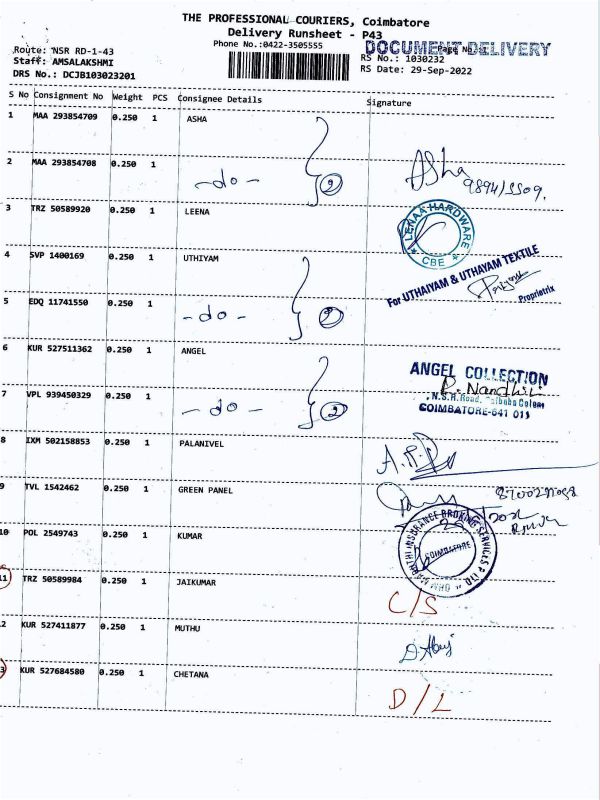 THE PROFESSIONAL COURIERS, Coimbatore
Delivery Runsheet - P43
Phone No.:0422-3505555
DOCUMENT DELIVERY
Route: NSR RD-1-43
Staff: AMSALAKSHMI
DRS No.: DCJB103023201
RS No.: 1030232
RS Date: 29-Sep-2022
S No Consignment No Weight PCS Consignee Details Signature
1 MAA 293854709 0.250 1 ASHA
2 MAA 293854708 0.250 1 -do- 2 Asha
3 TRZ 50589920 0.250 1 LEENA
LEENAA HARDWARE
CBE
4 SVP 1400169 0.250 1 UTHIYAM
For UTHAIYAM & UTHAYAM TEXTILE
Proprietrix
5 EDQ 11741550 0.250 1 -do- 2
6 KUR 527511362 0.250 1 ANGEL
ANGEL COLLECTION
R. Nandhini
N.S.R. Road, Saibaba Colony
COIMBATORE-641 011
7 VPL 939450329 0.250 1 -do- 2
8 IXM 502158853 0.250 1 PALANIVEL
9 TVL 1542462 0.250 1 GREEN PANEL
10 POL 2549743 0.250 1 KUMAR
INSURANCE BROKING SERVICES P LTD
COIMBATORE
11 TRZ 50589984 0.250 1 JAIKUMAR C/S
12 KUR 527411877 0.250 1 MUTHU
13 KUR 527684580 0.250 1 CHETANA D/L